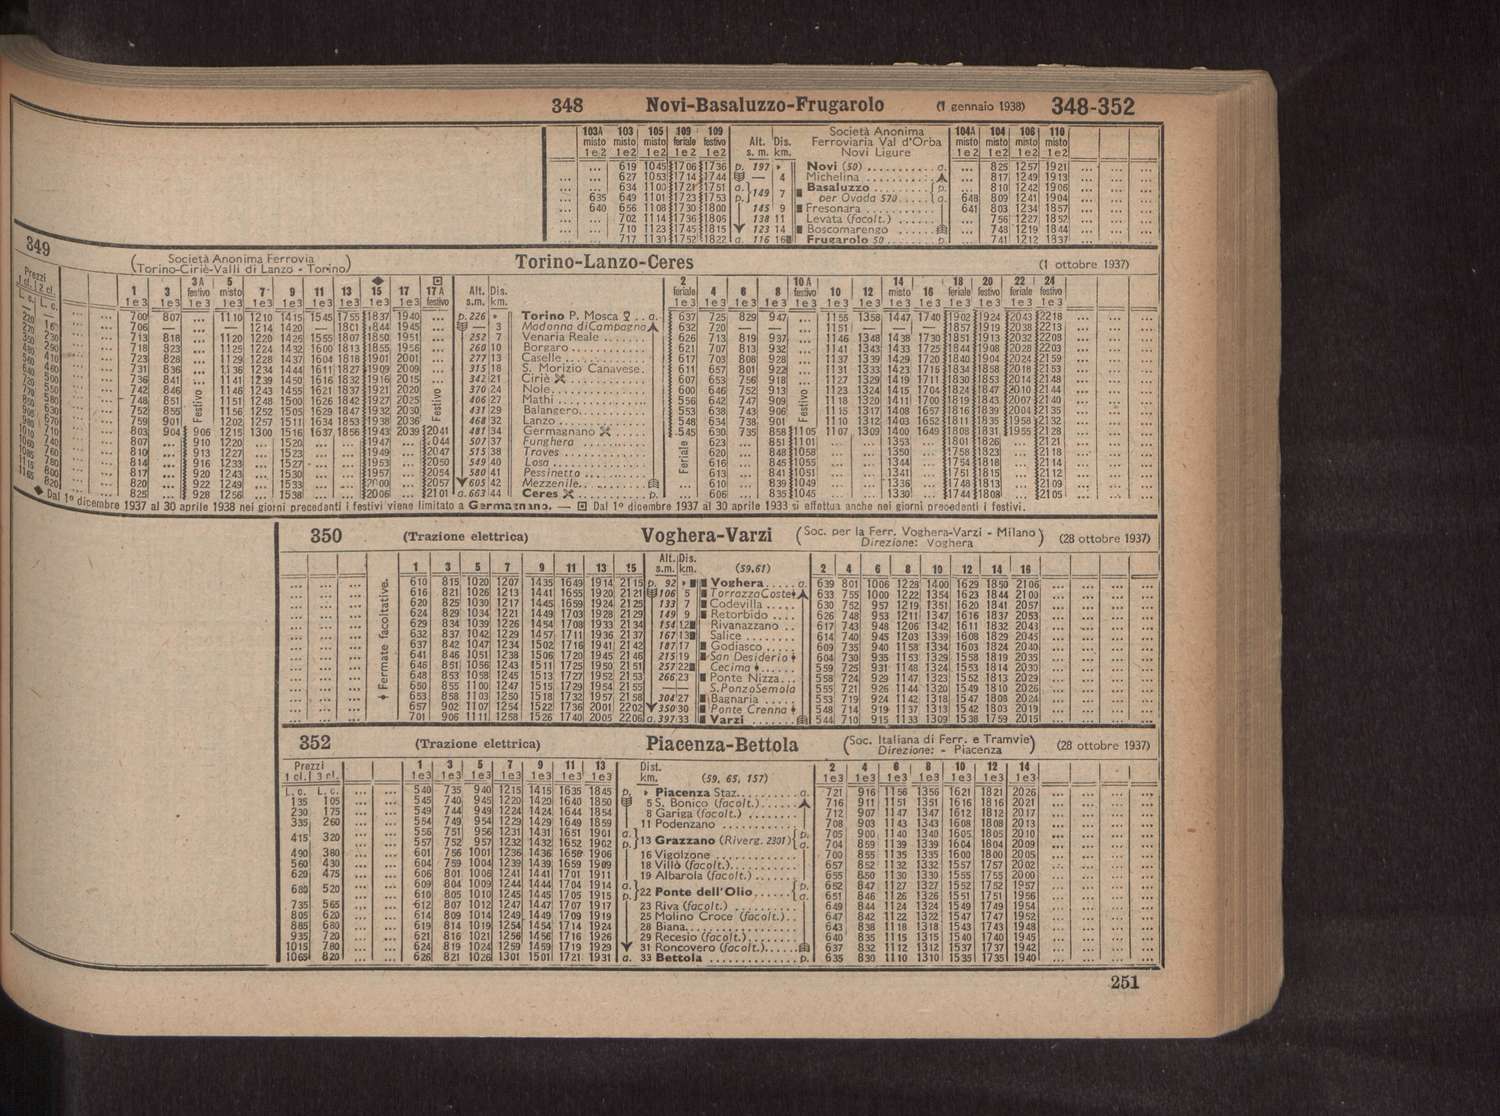 348 Novi-Basaluzzo-Frugarolo (1 gennaio 1938) 348-352
103A 103 105 109 109 Alt. Dis. Società Anonima 104A 104 106 110
misto misto misto feriale festivo s. m. km. Ferroviaria Val d'Orba misto misto misto misto
1 e 2 1 e 2 1 e 2 1 e 2 1 e 2 Novi Ligure 1 e 2 1 e 2 1 e 2 1 e 2
... 619 1045 1706 1736 p. 197 Novi (50) a. ... 825 1257 1921
... ... 627 1053 1714 1744 — 4 Michelina ... 817 1249 1913
... ... 634 1100 1721 1751 a. 149 7 Basaluzzo p. ... 810 1242 1906
... 635 649 1101 1723 1753 p. per Ovada 570 a. 648 809 1241 1904
... 640 656 1108 1730 1800 145 9 Fresonara 641 803 1234 1857
... ... 702 1114 1736 1805 138 11 Levata (facolt.) ... 756 1227 1852
... ... 710 1123 1745 1815 123 14 Boscomarengo ... 748 1219 1844
... ... 717 1130 1752 1822 a. 116 16 Frugarolo 50 p. ... 741 1212 1837
349 (Società Anonima Ferrovia Torino-Ciriè-Valli di Lanzo - Torino) Torino-Lanzo-Ceres (1 ottobre 1937)
Prezzi
1 cl. 2 cl.
L. c. L. c.
1 3 3A festivo 5 misto 7 9 11 13 15 17 17A festivo Alt. s.m. Dis. km. 2 feriale 4 6 8 10A festivo 10 12 14 misto 16 18 feriale 20 festivo 22 feriale 24 festivo
700 807 ... 1110 1210 1415 1545 1755 1837 1940 ... p. 226 Torino P. Mosca a. 637 725 829 947 ... 1155 1358 1447 1740 1902 1924 2043 2218
706 — ... — 1214 1420 — 1801 1844 1945 ... — 3 Madonna di Campagna 632 720 — — ... 1151 — — — 1857 1919 2038 2213
713 818 ... 1120 1220 1426 1555 1807 1850 1951 ... 252 7 Venaria Reale 626 713 819 937 ... 1146 1348 1438 1730 1851 1913 2032 2208
718 823 ... 1125 1224 1432 1600 1813 1855 1956 ... 260 10 Borgaro 621 707 813 932 ... 1141 1343 1433 1725 1844 1908 2028 2203
723 828 ... 1129 1228 1437 1604 1818 1901 2001 ... 277 13 Caselle 617 703 808 928 ... 1137 1339 1429 1720 1840 1904 2024 2159
731 836 ... 1136 1234 1444 1611 1827 1909 2009 ... 315 18 S. Morizio Canavese. 611 657 801 922 ... 1131 1333 1423 1716 1834 1858 2018 2153
736 841 ... 1141 1239 1450 1616 1832 1916 2015 ... 342 21 Ciriè 607 653 756 918 ... 1127 1329 1419 1711 1830 1853 2014 2148
742 846 1146 1243 1455 1621 1837 1921 2020 370 24 Nole 600 646 752 913 1123 1324 1415 1704 1824 1847 2010 2144
748 851 Festivo 1151 1248 1500 1626 1842 1927 2025 Festivo 406 27 Mathi 556 642 747 909 Festivo 1118 1320 1411 1700 1819 1843 2007 2140
752 855 1156 1252 1505 1629 1847 1932 2030 431 29 Balangero 553 638 743 906 1115 1317 1408 1657 1816 1839 2004 2135
759 901 1202 1257 1511 1634 1853 1938 2036 468 32 Lanzo 548 634 738 901 1110 1312 1403 1652 1811 1835 1958 2132
803 904 906 1215 1300 1516 1637 1856 1943 2039 2041 481 34 Germagnano 545 630 735 858 1105 1107 1309 1400 1649 1808 1831 1955 2128
807 ... 910 1220 ... 1520 ... ... 1947 ... 2044 507 37 Funghera Feriale 623 ... 851 1101 ... ... 1353 ... 1801 1826 ... 2121
810 ... 913 1227 ... 1523 ... ... 1949 ... 2047 515 38 Traves 620 ... 848 1058 ... ... 1350 ... 1758 1823 ... 2118
814 ... 916 1233 ... 1527 ... ... 1953 ... 2050 549 40 Losa 616 ... 845 1055 ... ... 1344 ... 1754 1818 ... 2114
817 ... 920 1243 ... 1530 ... ... 1957 ... 2054 580 41 Pessinetto 613 ... 841 1051 ... ... 1341 ... 1751 1815 ... 2112
820 ... 922 1249 ... 1533 ... ... 2000 ... 2057 605 42 Mezzenile 610 ... 839 1049 ... ... 1336 ... 1748 1813 ... 2109
825 ... 928 1256 ... 1538 ... ... 2006 ... 2101 a. 663 44 Ceres p. ... 606 ... 835 1045 ... ... 1330 ... 1744 1808 ... 2105
◆ Dal 1º dicembre 1937 al 30 aprile 1938 nei giorni precedenti i festivi viene limitato a Germagnano. — ⊡ Dal 1º dicembre 1937 al 30 aprile 1933 si effettua anche nei giorni precedenti i festivi.
350 (Trazione elettrica) Voghera-Varzi (Soc. per la Ferr. Voghera-Varzi - Milano Direzione: Voghera) (28 ottobre 1937)
Fermate facoltative.
1 3 5 7 9 11 13 15 Alt. s.m. Dis. km. (59.61) 2 4 6 8 10 12 14 16
610 815 1020 1207 1435 1649 1914 2115 p. 92 Voghera a. 639 801 1006 1228 1400 1629 1850 2106
616 821 1026 1213 1441 1655 1920 2121 106 5 Torrazza Coste 633 755 1000 1222 1354 1623 1844 2100
620 825 1030 1217 1445 1659 1924 2125 133 7 Codevilla 630 752 957 1219 1351 1620 1841 2057
624 829 1034 1221 1449 1703 1928 2129 149 9 Retorbido 626 748 953 1211 1347 1616 1837 2053
629 834 1039 1226 1454 1708 1933 2134 154 12 Rivanazzano 617 743 948 1206 1342 1611 1832 2043
632 837 1042 1229 1457 1711 1936 2137 167 13 Salice 614 740 945 1203 1339 1608 1829 2045
637 842 1047 1234 1502 1716 1941 2142 187 17 Godiasco 609 735 940 1158 1334 1603 1824 2040
641 846 1051 1238 1506 1720 1945 2146 215 19 San Desiderio 604 730 935 1153 1329 1558 1819 2035
646 851 1056 1243 1511 1725 1950 2151 257 22 Cecima 559 725 931 1148 1324 1553 1814 2030
648 853 1058 1245 1513 1727 1952 2153 266 23 Ponte Nizza 558 724 929 1147 1323 1552 1813 2029
650 855 1100 1247 1515 1729 1954 2155 — — S. Ponzo Semola 555 721 926 1144 1320 1549 1810 2026
653 858 1103 1250 1518 1732 1957 2158 304 27 Bagnaria 553 719 924 1142 1318 1547 1808 2024
657 902 1107 1254 1522 1736 2001 2202 350 30 Ponte Crenna 548 714 919 1137 1313 1542 1803 2019
701 906 1111 1258 1526 1740 2005 2206 a. 397 33 Varzi 544 710 915 1133 1309 1538 1759 2015
352 (Trazione elettrica) Piacenza-Bettola (Soc. Italiana di Ferr. e Tramvie Direzione: - Piacenza) (28 ottobre 1937)
Prezzi 1 3 5 7 9 11 13 Dist. 2 4 6 8 10 12 14
1 cl. 3 cl. 1 e 3 1 e 3 1 e 3 1 e 3 1 e 3 1 e 3 1 e 3 km. (59, 65, 157) 1 e 3 1 e 3 1 e 3 1 e 3 1 e 3 1 e 3 1 e 3
L. c. L. c. 540 735 940 1215 1415 1635 1845 p. Piacenza Staz. a. 721 916 1156 1356 1621 1821 2026
135 105 545 740 945 1220 1420 1640 1850 5 S. Bonico (facolt.) 716 911 1151 1351 1616 1816 2021
230 175 549 744 949 1224 1424 1644 1854 8 Gariga (facolt.) 712 907 1147 1347 1612 1812 2017
335 260 554 749 954 1229 1429 1649 1859 11 Podenzano 708 903 1143 1343 1608 1808 2013
415 320 556 751 956 1231 1431 1651 1901 a. 13 Grazzano (Riverg. 2301) p. 705 900 1140 1340 1605 1805 2010
557 752 957 1232 1432 1652 1902 p. a. 704 859 1139 1339 1604 1804 2009
490 380 601 756 1001 1236 1436 1656 1906 16 Vigolzone 700 855 1135 1335 1600 1800 2005
560 430 604 759 1004 1239 1439 1659 1909 18 Villò (facolt.) 657 852 1132 1332 1557 1757 2002
620 475 606 801 1006 1241 1441 1701 1911 19 Albarola (facolt.) 655 850 1130 1330 1555 1755 2000
680 520 609 804 1009 1244 1444 1704 1914 a. 22 Ponte dell'Olio p. 652 847 1127 1327 1552 1752 1957
610 805 1010 1245 1445 1705 1915 p. a. 651 846 1126 1326 1551 1751 1956
735 565 612 807 1012 1247 1447 1707 1917 23 Riva (facolt.) 649 844 1124 1324 1549 1749 1954
805 620 614 809 1014 1249 1449 1709 1919 25 Molino Croce (facolt.) 647 842 1122 1322 1547 1747 1952
885 680 619 814 1019 1254 1454 1714 1924 28 Biana 643 838 1118 1318 1543 1743 1948
935 720 621 816 1021 1256 1456 1716 1926 29 Recesio (facolt.) 640 835 1115 1315 1540 1740 1945
1015 780 624 819 1024 1259 1459 1719 1929 31 Roncovero (facolt.) 637 832 1112 1312 1537 1737 1942
1065 820 626 821 1026 1301 1501 1721 1931 a. 33 Bettola p. 635 830 1110 1310 1535 1735 1940
251